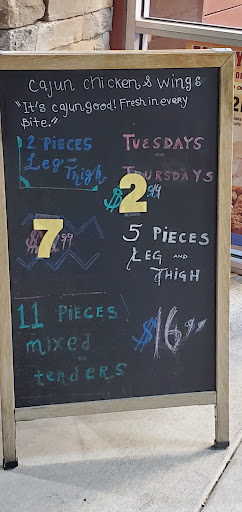 Cajun chicken & wings
"It's cajungood! Fresh in every
Bite."
2 PIECES
Leg
Thigh
TUESDAYS
THURSDAYS
$2.99
$7.99
5 PiECES
LEG AND
THIGH
11 PiECES
mixed
or
tenders
$16.99